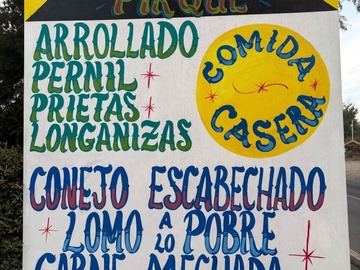 PIRQUE
ARROLLADO
PERNIL
PRIETAS
LONGANIZAS
COMIDA
CASERA
CONEJO ESCABECHADO
LOMO A LO POBRE
CARNE MECHADA